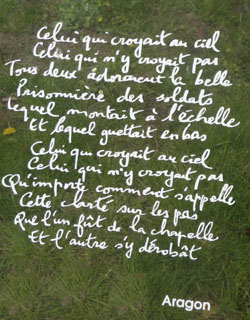 Celui qui croyait au ciel
Celui qui n'y croyait pas
Tous deux adoraient la belle
Prisonnière des soldats
Lequel montait à l'échelle
Et lequel guettait en bas
Celui qui croyait au ciel
Celui qui n'y croyait pas
Qu'importe comment s'appelle
Cette clarté sur les pas
Que l'un fût de la chapelle
Et l'autre s'y dérobât
Aragon